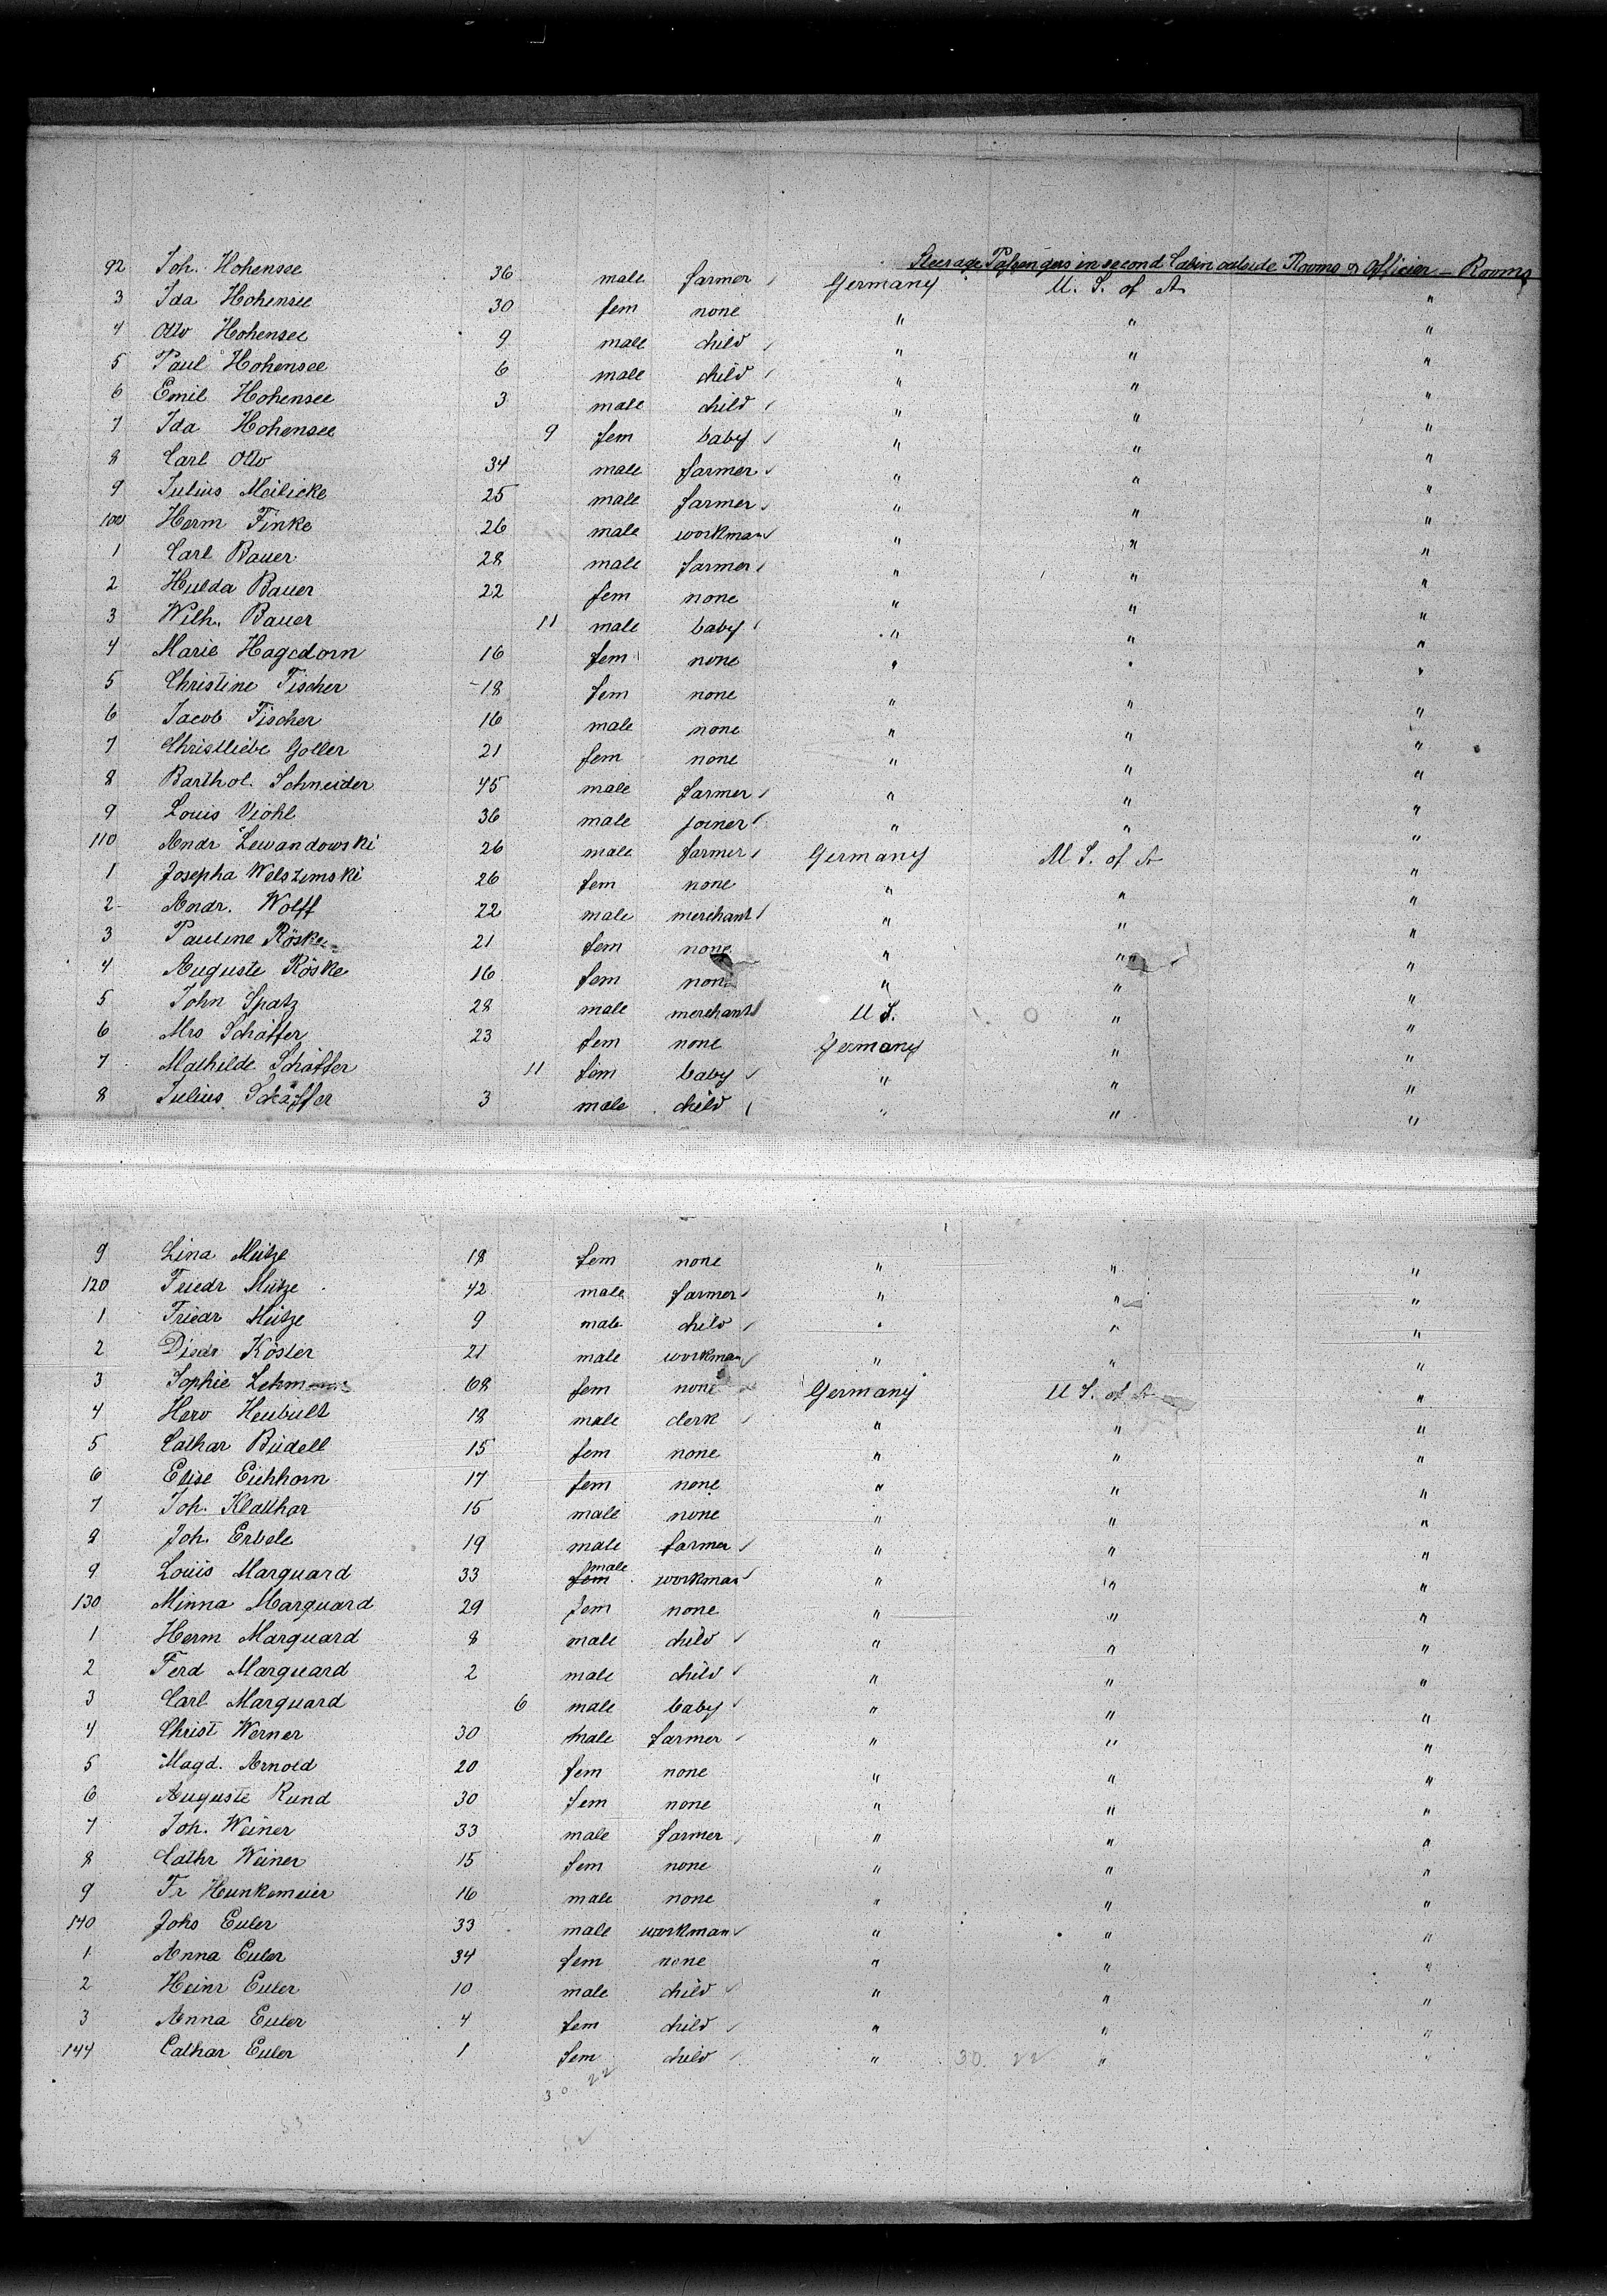 Steerage Passengers in second Cabin outside Rooms & Officier - Rooms
92 Joh. Hohensee 36 male farmer Germany U. S. of A. "
3 Ida Hohensee 30 fem none " " "
4 Otto Hohensee 9 male child " " "
5 Paul Hohensee 6 male child " " "
6 Emil Hohensee 3 male child " " "
7 Ida Hohensee 9 fem baby " " "
8 Carl Otto 34 male farmer " " "
9 Julius Meilicke 25 male farmer " " "
100 Herm Finke 26 male workman " " "
1 Carl Bauer 28 male farmer " " "
2 Hulda Bauer 22 fem none " " "
3 Wilh. Bauer 11 male baby " " "
4 Marie Hagedorn 16 fem none " " "
5 Christine Fischer 18 fem none " " "
6 Jacob Fischer 16 male none " " "
7 Christliebe Goller 21 fem none " " "
8 Barthol. Schneider 45 male farmer " " "
9 Louis Viohl 36 male joiner " " "
110 Andr Lewandowski 26 male farmer Germany U S. of A "
1 Josepha Welszimski 26 fem none " " "
2 Andr. Wolff 22 male merchant " " "
3 Pauline Röske 21 fem none " " "
4 Auguste Röske 16 fem none " " "
5 John Spatz 28 male merchant U S. " "
6 Mrs Schäffer 23 fem none Germany " "
7 Mathilde Schäffer 11 fem baby " " "
8 Julius Schäffer 3 male child " " "
9 Lina Mütze 18 fem none " " "
120 Friedr Mütze 42 male farmer " " "
1 Friedr Mütze 9 male child " " "
2 Diedr Köster 21 male workman " " "
3 Sophie 68 fem none Germany U S. of A "
4 Hero Heubult 18 male clerk " " "
5 Cathar Büdell 15 fem none " " "
6 Elise Eichhorn 17 fem none " " "
7 Joh. Klatthar 15 male none " " "
8 Joh. Erbele 19 male farmer " " "
9 Louis Marquard 33 male workman " " "
130 Minna Marquard 29 fem none " " "
1 Herm Marquard 8 male child " " "
2 Ferd Marquard 2 male child " " "
3 Carl Marquard 6 male baby " " "
4 Christ Werner 30 male farmer " " "
5 Magd. Arnold 20 fem none " " "
6 Auguste Rund 30 fem none " " "
7 Joh. Weiner 33 male farmer " " "
8 Cathr Weiner 15 fem none " " "
9 Fr Hunkemeier 16 male none " " "
140 Johs Euler 33 male workman " " "
1 Anna Euler 34 fem none " " "
2 Heinr Euler 10 male child " " "
3 Anna Euler 4 fem child " " "
144 Cathar Euler 1 fem child " 30. 22 " "
30. 22